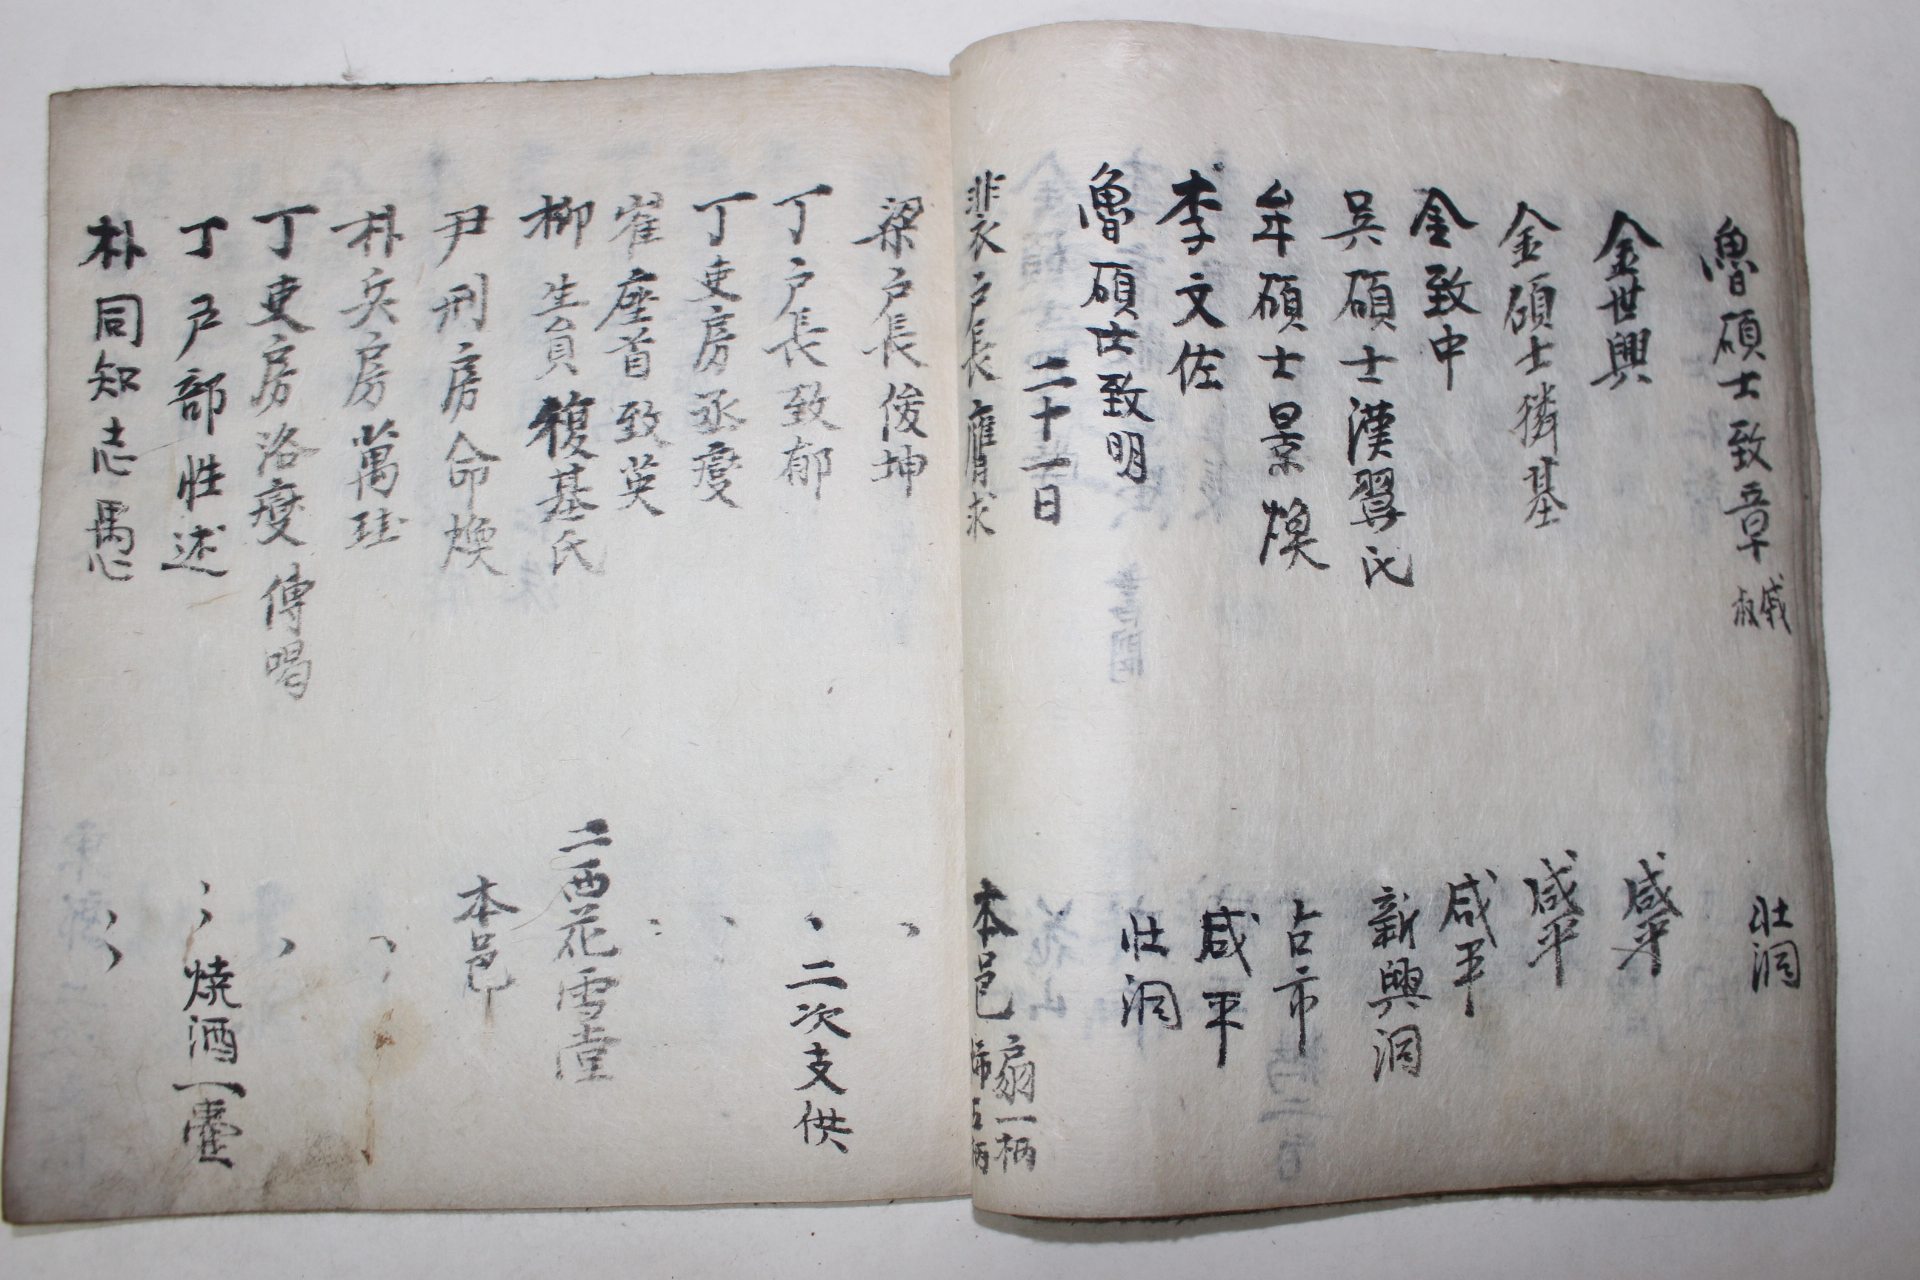 魯碩士致章 戚叔 壯洞
金世興 咸平
金碩士獜基 咸平
金致中 咸平
吳碩士漢翼氏 新興洞
牟碩士景煥 占市
李文佐 咸平
魯碩士致明 壯洞
二十一日
裴戶長膺求 本邑 扇一柄
梁戶長俊坤 、
丁戶長致郁 、二次支供
丁吏房丞燮 、
崔座首致英 、
柳生員馥基氏 二西花雪堂
尹刑房命煥 本邑
朴兵房萬珪 、
丁吏房洛燮 傳喝 、
丁戶部性述 、、燒酒一壺
朴同知志愚 、、